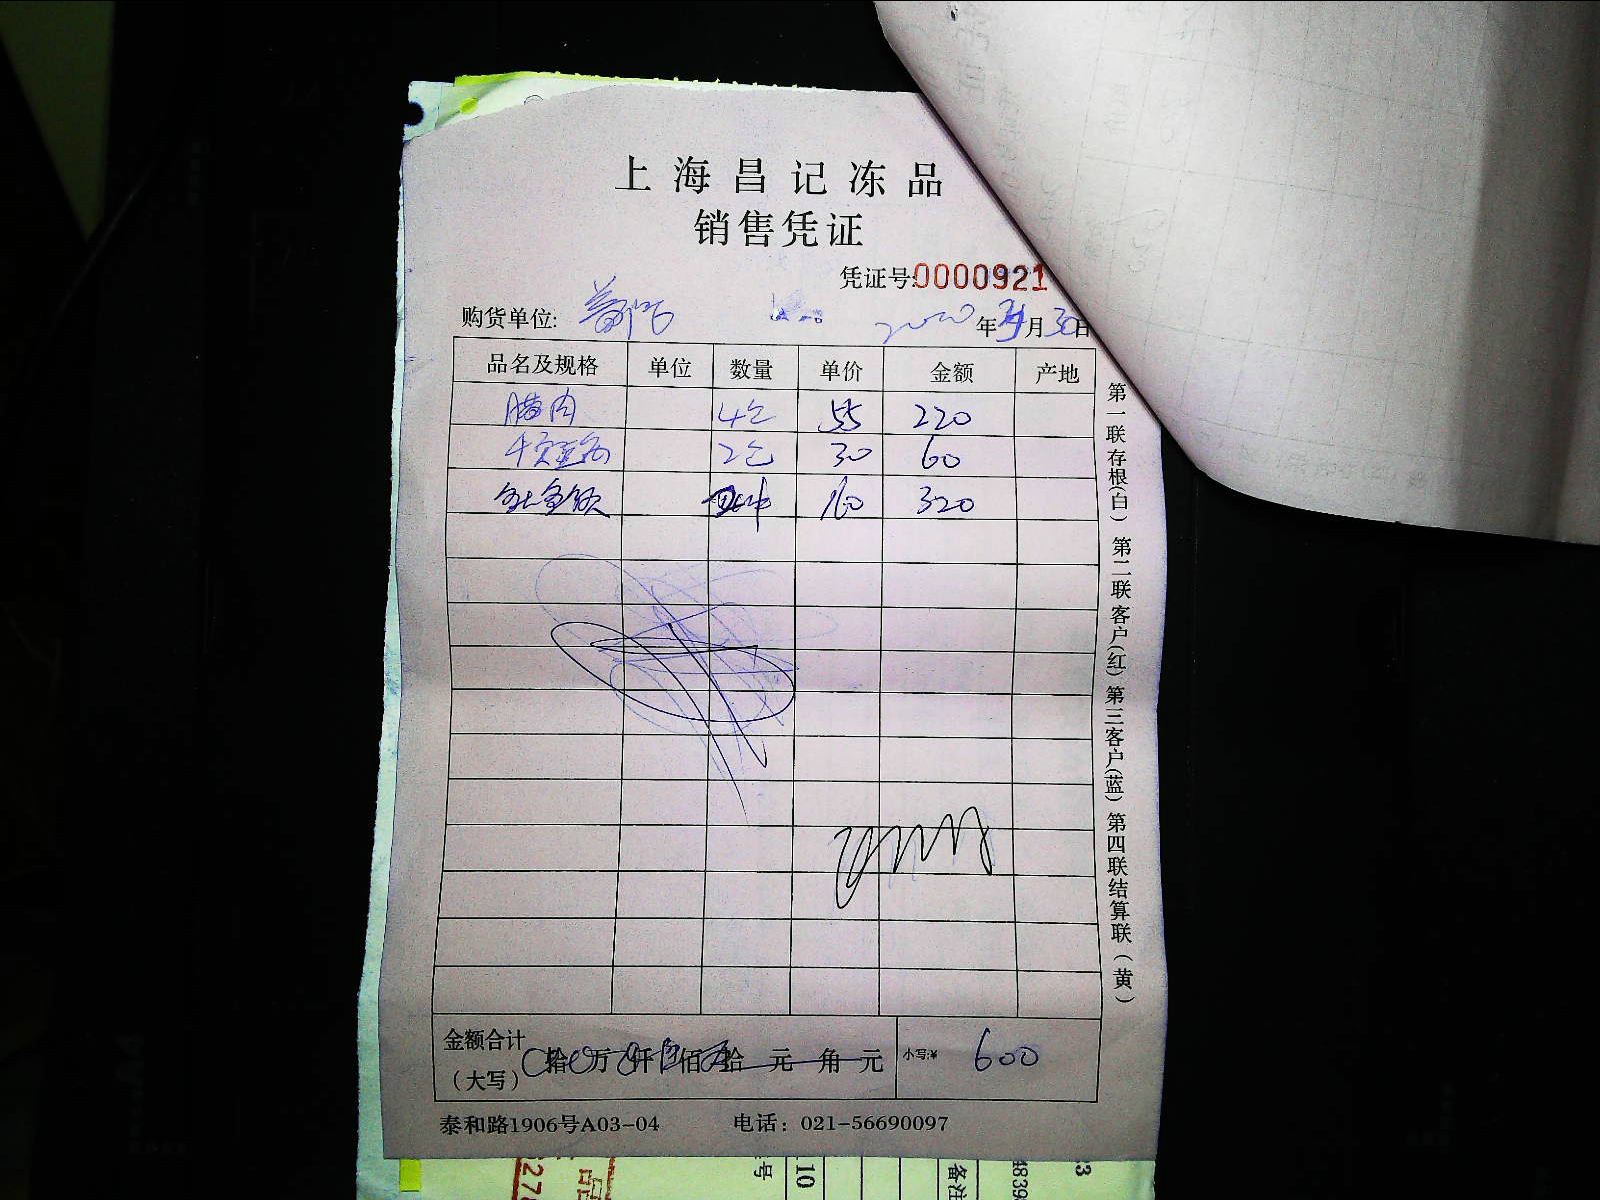 上海昌记冻品
销售凭证
凭证号:0000921
购货单位: 2020年 月30日
品名及规格 单位 数量 单价 金额 产地
腊肉 4包 55 220
2包 30 60
160 320
金额合计(大写) 拾 万 仟 佰 拾 元 角 元 小写:¥ 600
泰和路1906号A03-04 电话：021-56690097
第一联存根(白) 第二联客户(红) 第三客户(蓝) 第四联结算联(黄)
备注